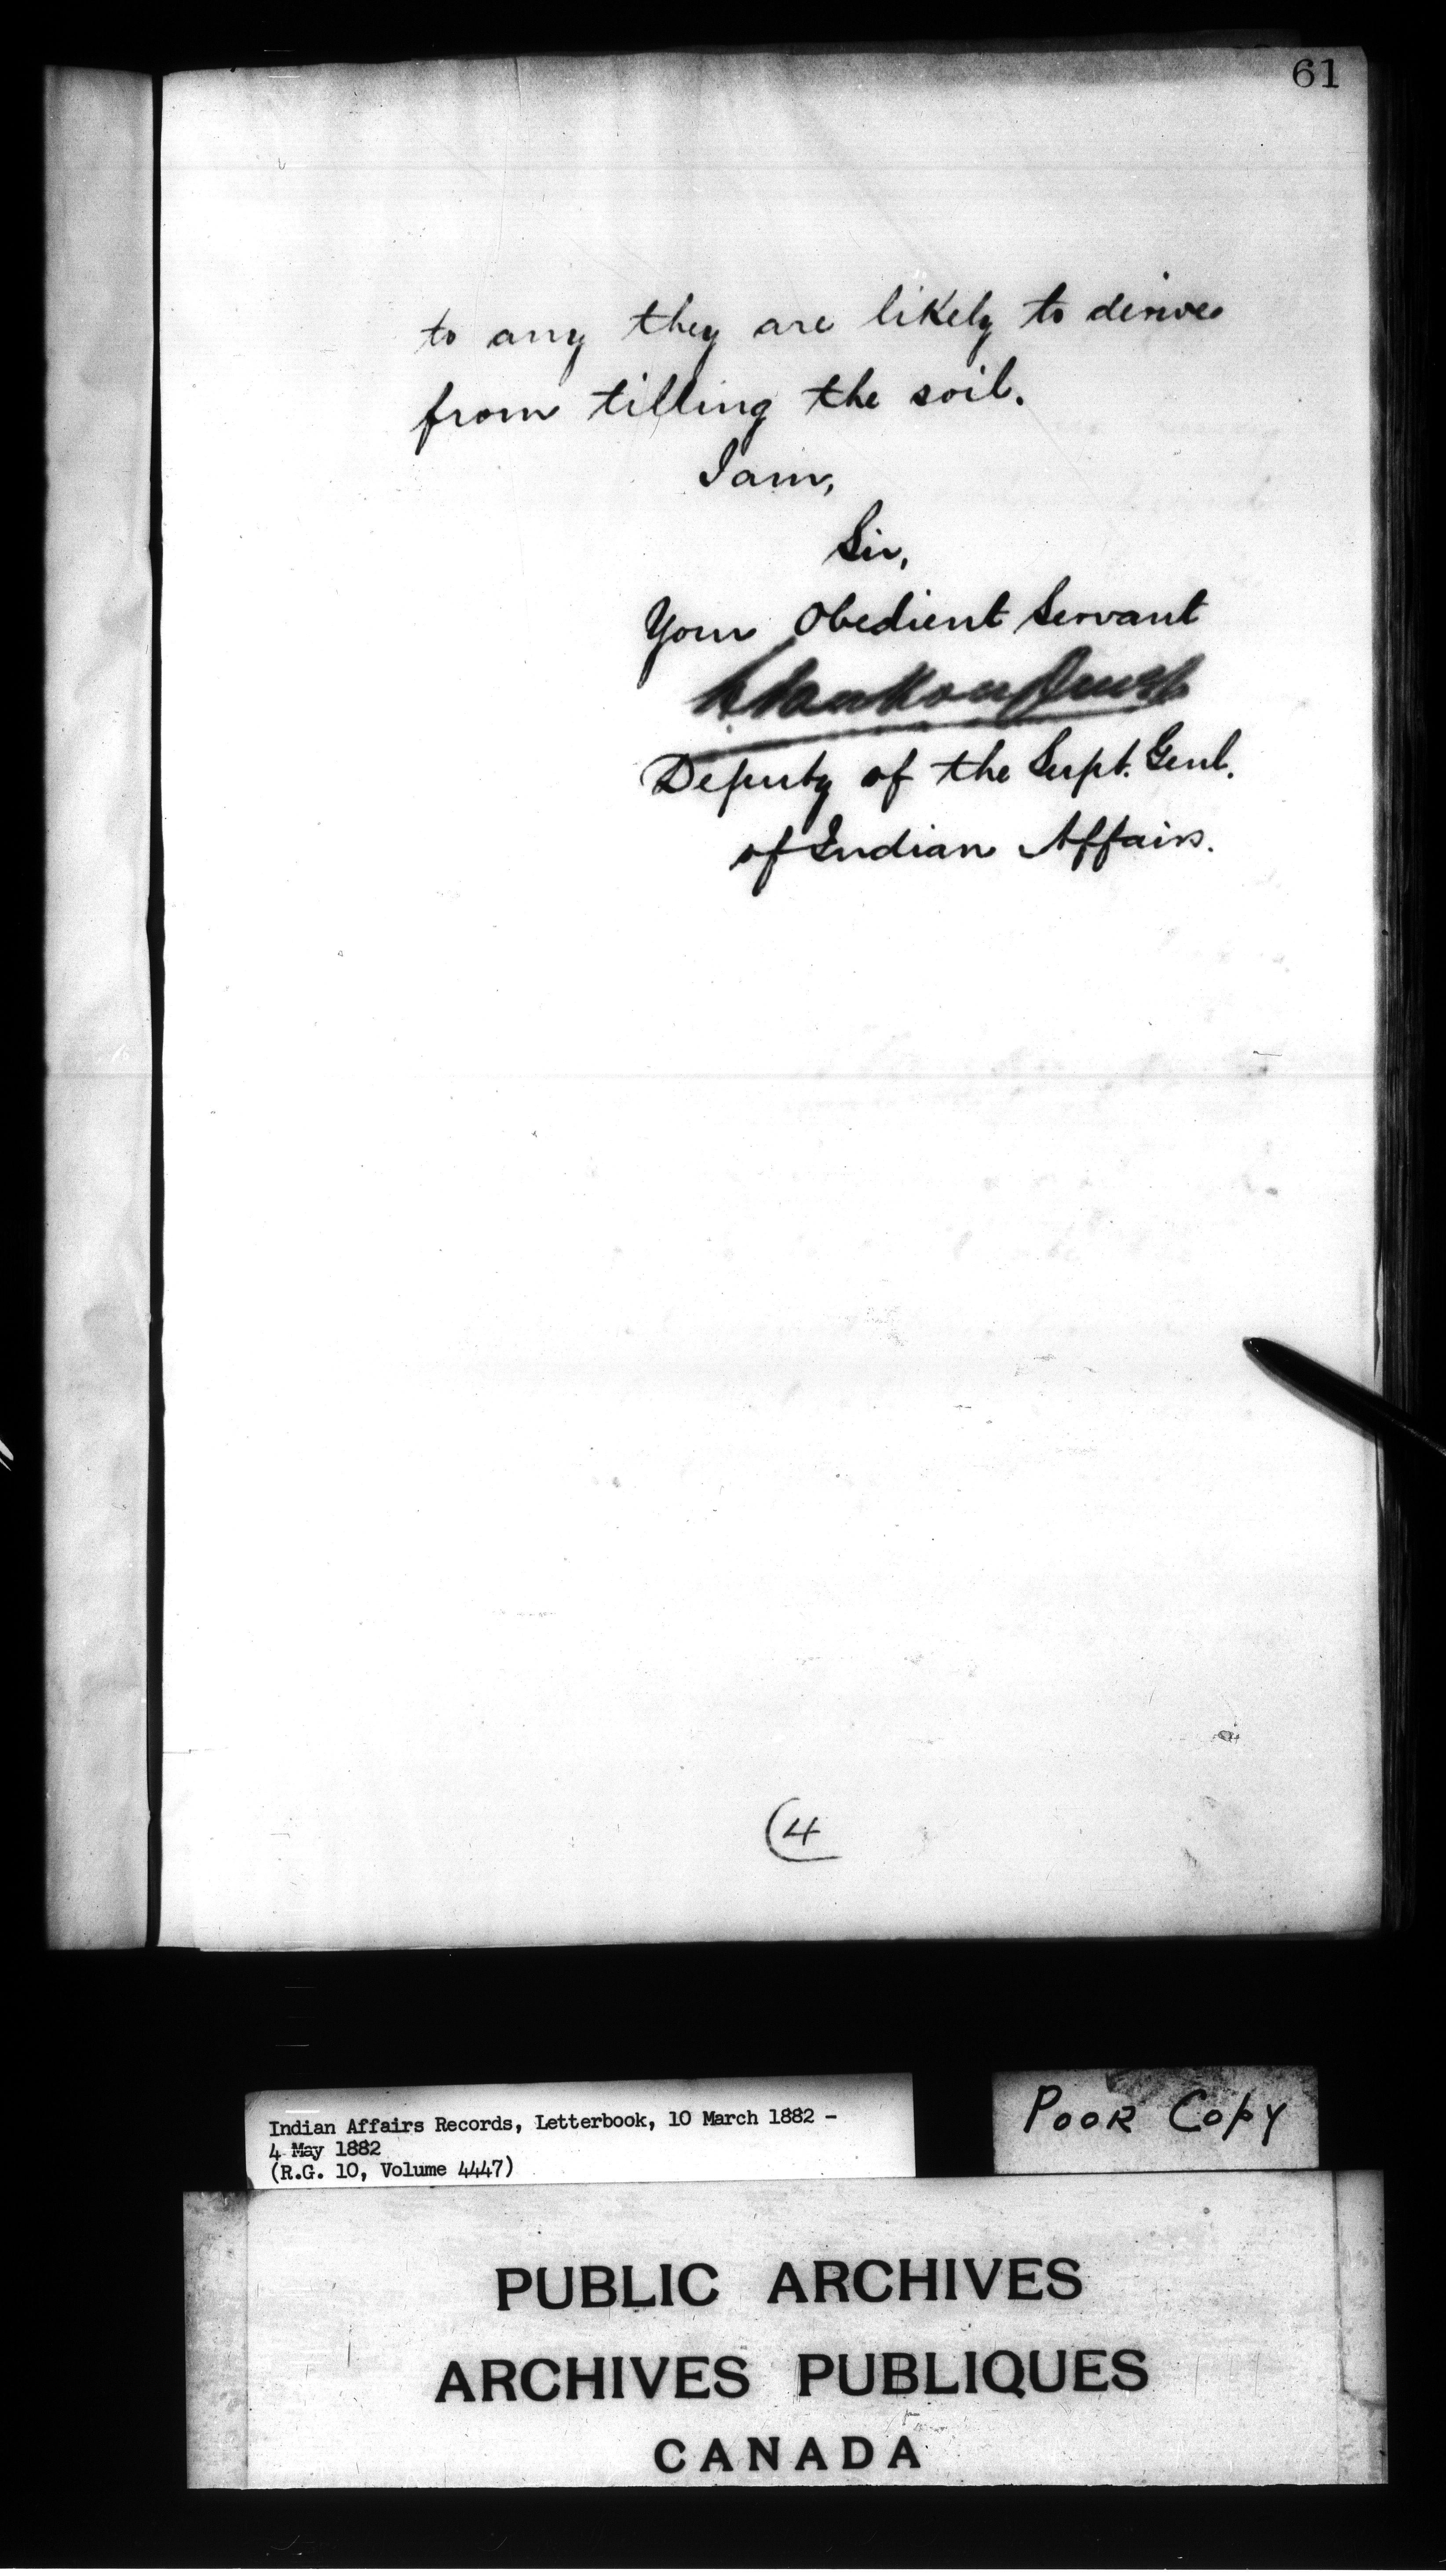 61
to any they are likely to derive
from tilling the soil.
I am,
Sir,
Your Obedient Servant
Deputy of the Supt. Genl.
of Indian Affairs.
4
Indian Affairs Records, Letterbook, 10 March 1882 -
4 May 1882
(R.G. 10, Volume 4447)
POOR COPY
PUBLIC ARCHIVES
ARCHIVES PUBLIQUES
CANADA